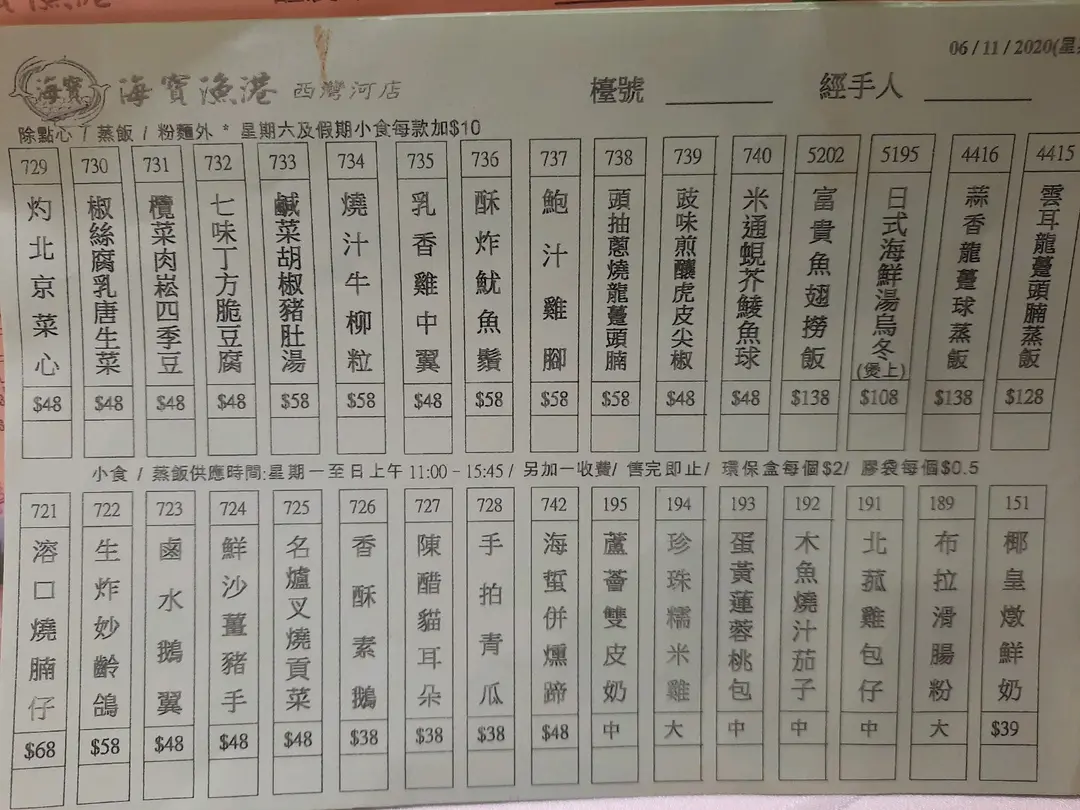 06 / 11 / 2020(星
海寶 海寶漁港 西灣河店 檯號 經手人
除點心 / 蒸飯 / 粉麵外 * 星期六及假期小食每款加$10
729 730 731 732 733 734 735 736 737 738 739 740 5202 5195 4416 4415
灼北京菜心
椒絲腐乳唐生菜
欖菜肉崧四季豆
七味丁方脆豆腐
鹹菜胡椒豬肚湯
燒汁牛柳粒
乳香雞中翼
酥炸魷魚鬚
鮑汁雞腳
頭抽蔥燒龍躉頭腩
豉味煎釀虎皮尖椒
米通蜆芥鯪魚球
富貴魚翅撈飯
日式海鮮湯烏冬(煲上)
蒜香龍躉球蒸飯
雲耳龍躉頭腩蒸飯
$48 $48 $48 $48 $58 $58 $48 $58 $58 $58 $48 $48 $138 $108 $138 $128
小食 / 蒸飯供應時間:星期一至日上午 11:00 - 15:45 / 另加一收費/ 售完即止/ 環保盒每個$2/ 膠袋每個$0.5
721 722 723 724 725 726 727 728 742 195 194 193 192 191 189 151
溶口燒腩仔
生炸妙齡鴿
鹵水鵝翼
鮮沙薑豬手
名爐叉燒貢菜
香酥素鵝
陳醋貓耳朵
手拍青瓜
海蜇併燻蹄
蘆薈雙皮奶
珍珠糯米雞
蛋黃蓮蓉桃包
木魚燒汁茄子
北菰雞包仔
布拉滑腸粉
椰皇燉鮮奶
$68 $58 $48 $48 $48 $38 $38 $38 $48 中 大 中 中 中 大 $39